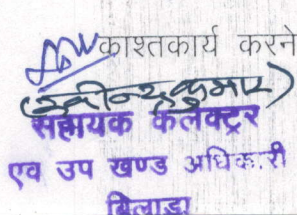 काश्तकार्य करने
(रवीन्द्र कुमार)
सहायक कलेक्ट्रर
एव उप खण्ड अधिकारी
बिलाड़ा